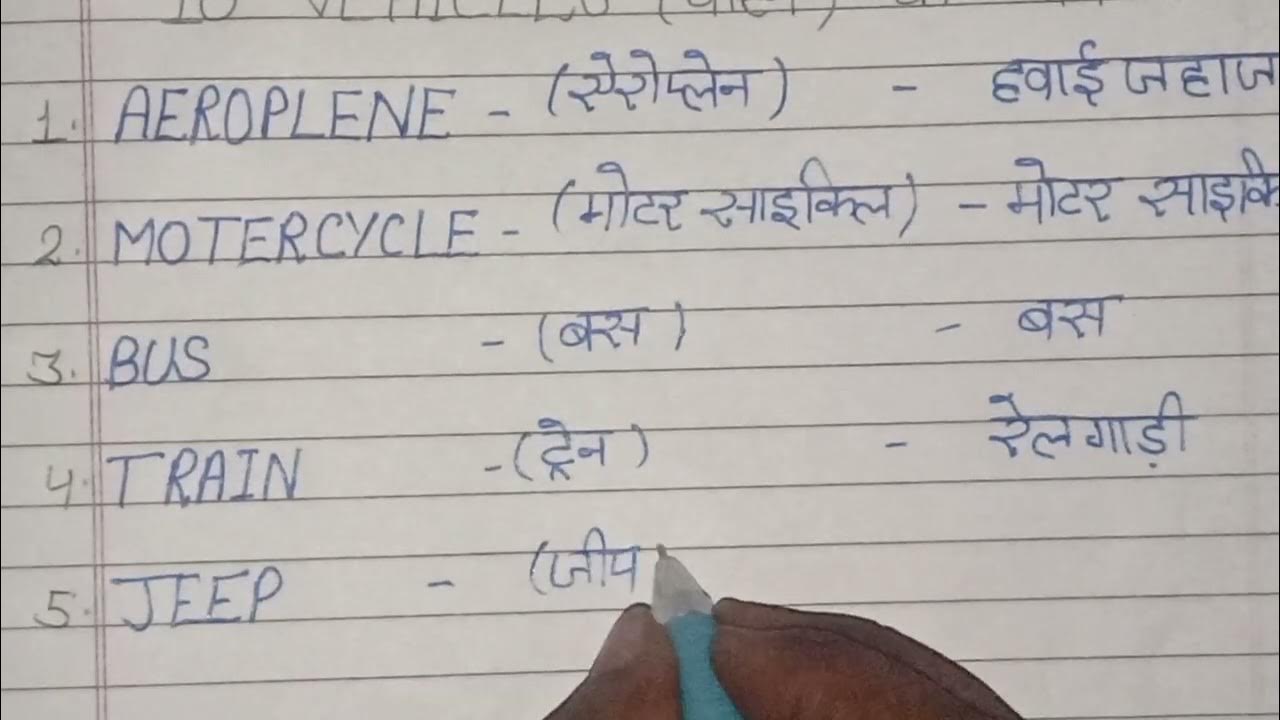 10 VEHICLES (वाहन)
1. AEROPLENE - (एेरोप्लेन) - हवाई जहाज
2. MOTERCYCLE - (मोटर साइकिल) - मोटर साइकि
3. BUS - (बस) - बस
4. TRAIN - (ट्रेन) - रेलगाड़ी
5. JEEP - (जीप